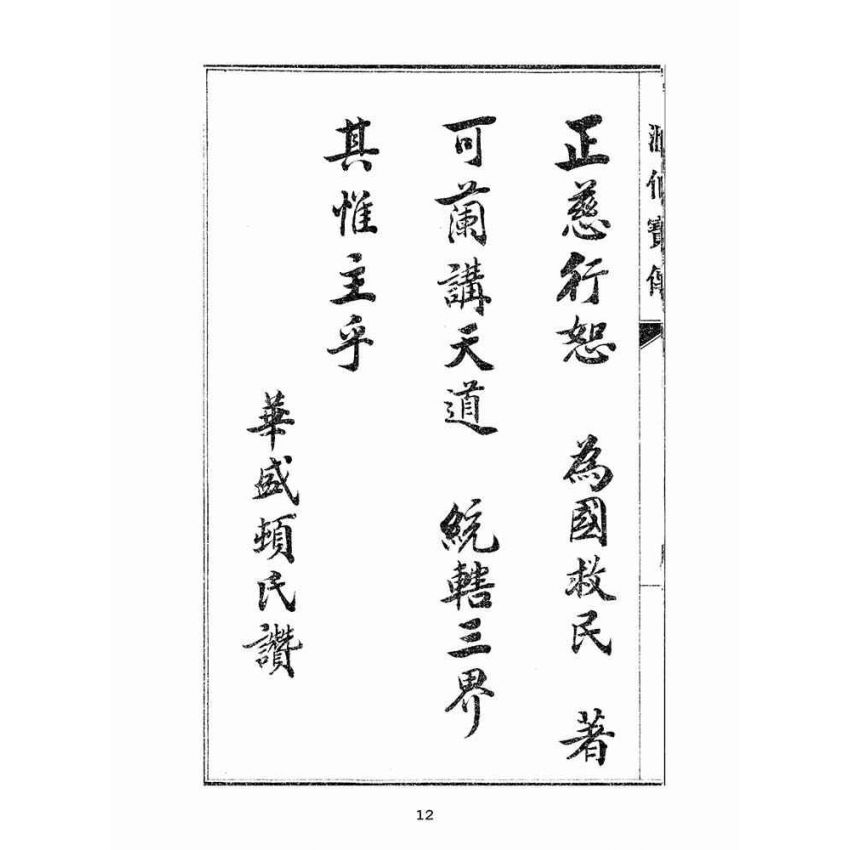 正慈行恕 為國救民 著
可蘭講天道 統轄三界
其惟主乎
華盛頓民讚
12